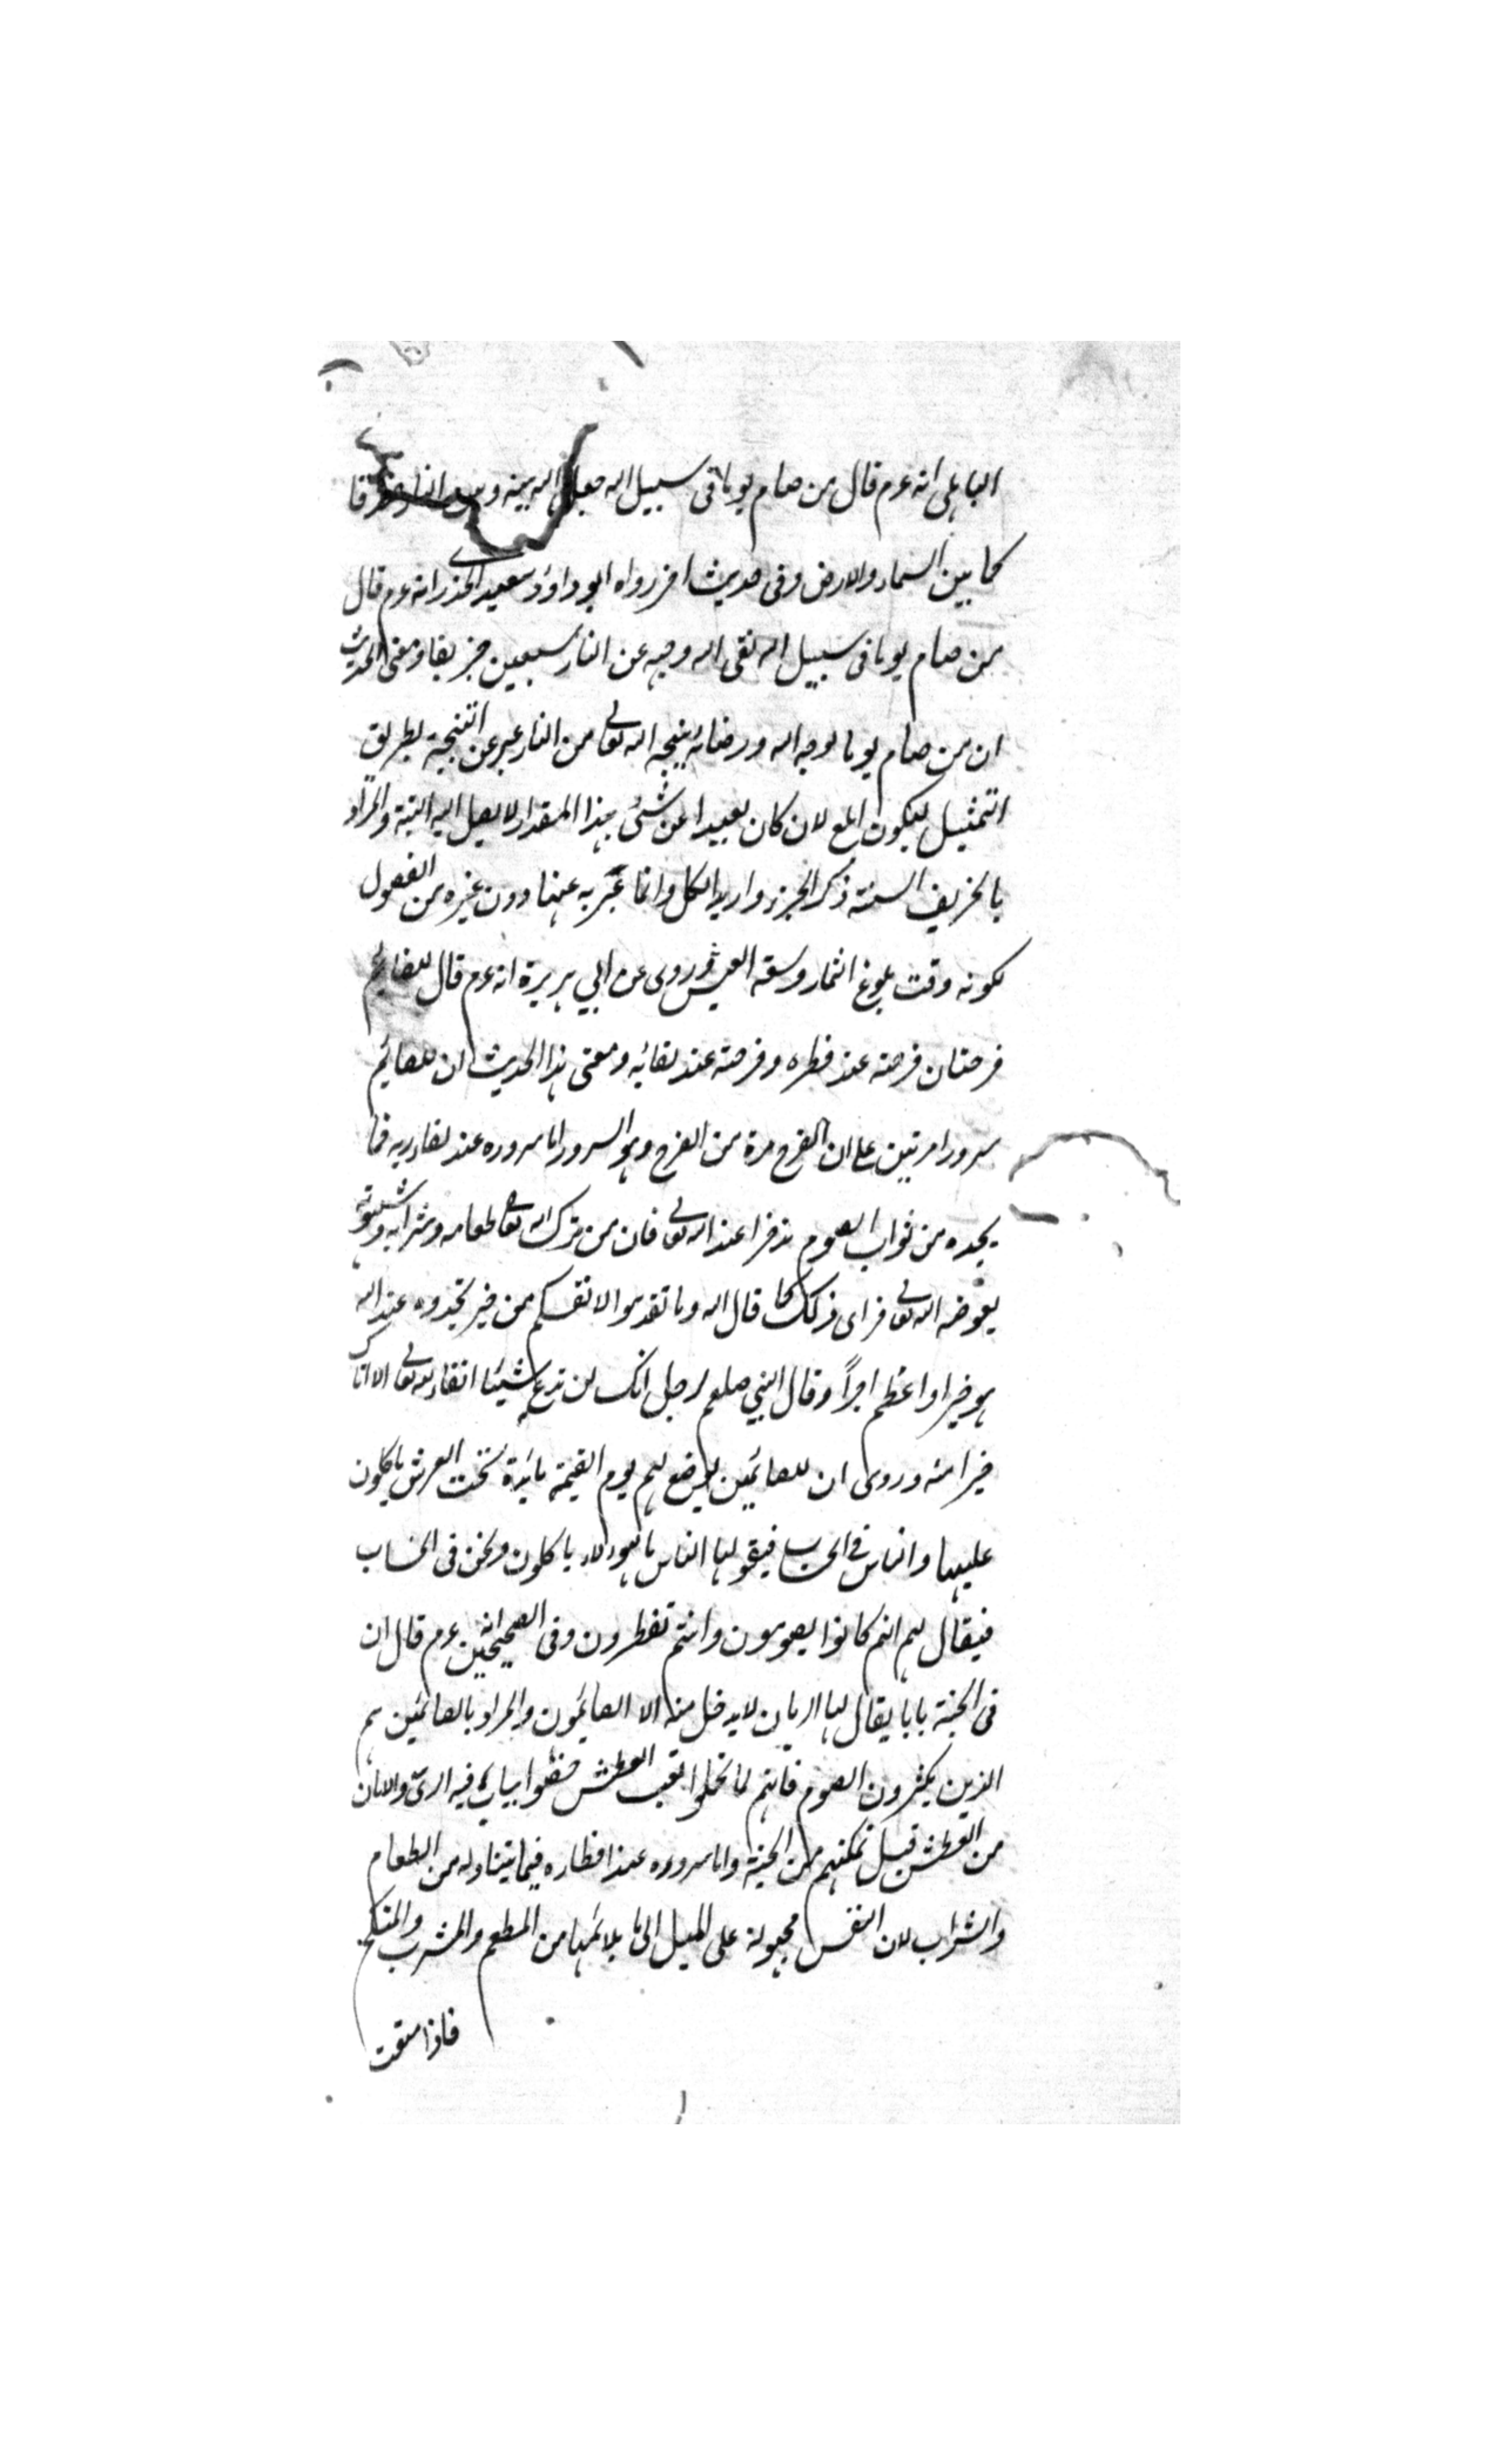 الباهلى انه عرم قال من صام يوما فى سبيل اله جعل اله بينه وبين النار خندقا
كما بين السماء والارض وفى حديث اخر رواه ابو داود سعيد الخذرى انه عرم قال
من صام يوما فى سبيل اله نقى اله وجهه عن النار سبعين خريفا ومعنى الحديث
ان من صام يوما لوجه اله ورضائه ينجيه اله تعالى من النار عبر عن التنجية بطريق
التمثيل ليكون ابلغ لان كان بعيدا عن شئ بهذا المقدار لا يصل اليه البتة والمراد
بالخريف السنة ذكر الجزء واريد الكل وانما عبّر به عنها دون غيره من الفصول
لكونه وقت بلوغ الثمار وسعة العيش وروى عن ابي هريرة انه عرم قال للصائم
فرحتان فرحة عند فطره وفرحة عند لقائه ومعنى هذا الحديث ان للصائم
سرورا مرتين على ان الفرح مرة من الفرح وهو السرور اما سروره عند لقاء ربه فما
يجده من ثواب الصوم ذخرا عند اله تعالى فان من ترك اله تعالى طعامه وشرابه وشهوته
يعوضه اله تعالى خرا ى ذلك كما قال اله وما تقدموا لانفسكم من خير تجدوه عند اله
هو خيرا واعظم اجراً وقال النبي صلعم لرجل انك لن تدع شيئا اتقاء له تعالى الا اتاك
خيرا منه وروى ان للصائمين يوضع لهم يوم القيمة مائدة تحت العرش ياكلون
عليها والناس فى الحساب فيقولها الناس ما هؤلاء ياكلون ونحن فى الحساب
فيقال لهم انهم كانوا يصومون وانتم تفطرون وفى الصحيحين انه عرم قال ان
فى الجنة بابا يقال لها الريان لا يدخل منه الا الصائمون والمراد بالصائمين هم
الذين يكثرون الصوم فانهم لما تحملوا تعب العطش خصوا بباب فيه الرىّ والامان
من العطش قبل تمكنهم من الجنة واما سروره عند افطاره فيما يتناوله من الطعام
والشراب لان النفس مجبولة على الميل الى ما يلائمها من المطعم والمشرب والمنكح
فاذا منعت